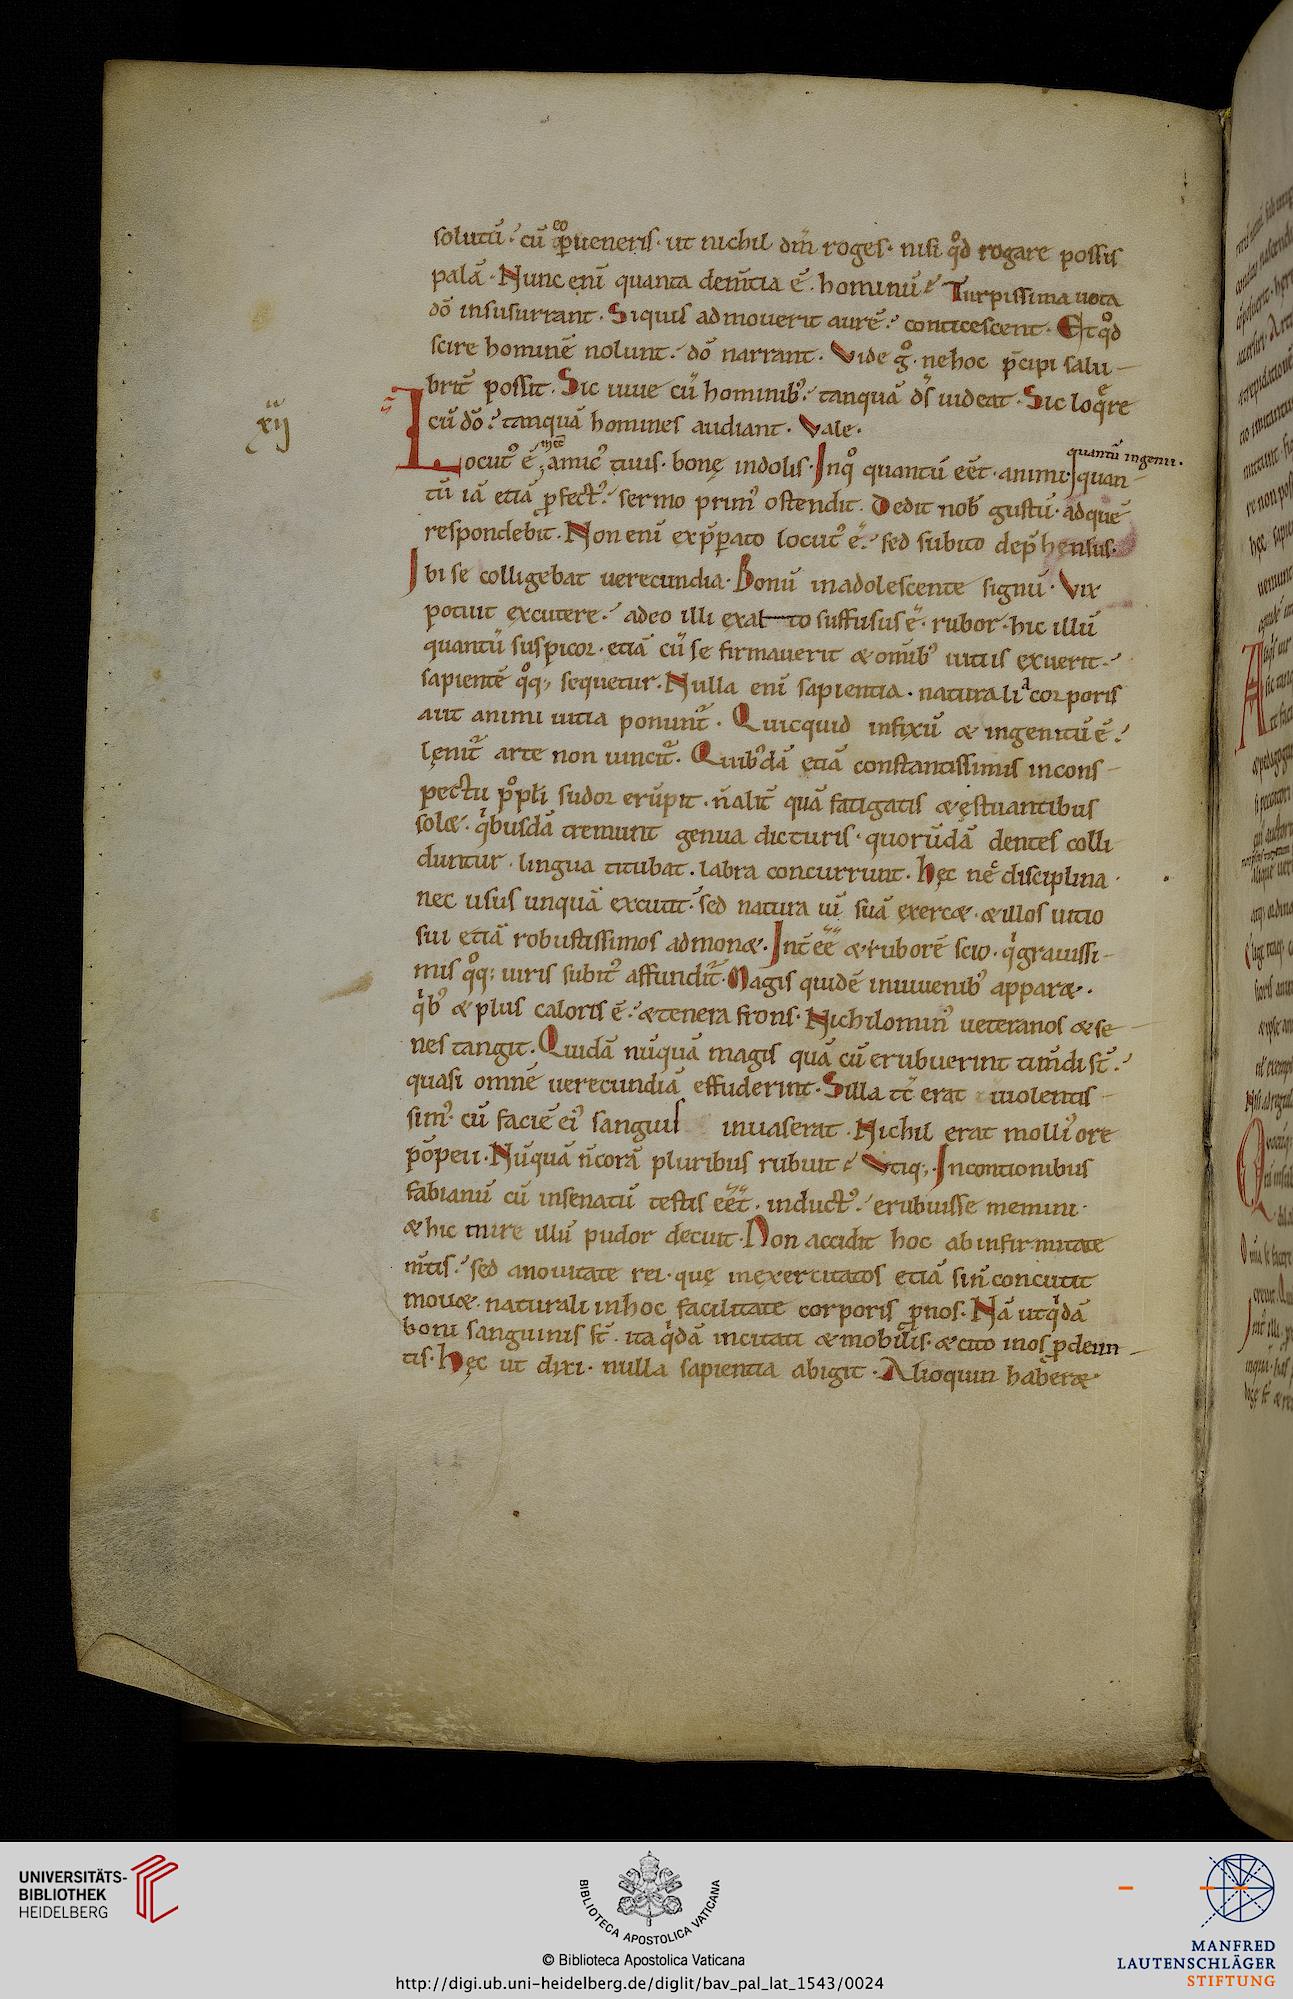 solutū. cū eo p̱ueneris. ut nichil dm̄ roges. nisi qͦd rogare possis
palā. Nunc enī quanta dem̄tia ē. hominū. Turpissima uota
dō insusurrant. Siquis admouerit aurē. conticescent. Et qͦd
scire hominē nolunt. dō narrant. Vide gͦ. ne hoc p̄cipi salu-
brit̄ possit. Sic uiue cū hominibꝰ. tanquā ds̄ uideat. Sic loq̄re
cū dō. tanquā homines audiant. Vale.
xij
Locutꝰ ē mec̄ amicꝰ tuus. bonę indolis. Inqͦ quantū eēt. animi. quantū ingenii. quan
tū iā etiā ꝑfectꝰ. sermo primꝰ ostendit. Dedit nob̄ gustū. ad quē
respondebit. Non enī ex p̄parato locutꝰ ē. sed subito dep̄hensus.
Ibi se colligebat uerecundia. Bonū in adolescente signū. Vix
potuit excutere. adeo illi ex alto suffusus ē. rubor. hic illū
quantū suspicor. etiā cū se firmauerit & om̄ibꝰ uitiis exuerit.
sapientē qͦq; sequetur. Nulla enī sapientia. naturalia corporis
aut animi uitia ponunt̄. Quicquid infixū & ingenitū ē.
lęnit̄ arte non uincit̄. Quibꝰdā etiā constantissimis in cons-
pectu pͦpli sudor erūpit. n̄ alit̄ quā fatigatis & ęstuantibus
sol&. qͥbusdā tremunt genua dicturis. quorūdā dentes colli
duntur. lingua titubat. labra concurrunt. hęc nec disciplina.
nec usus unquā excutit. sed natura uī suā exerc&. & illos uitio
sui etiā robustissimos admon&. Int̄ eē & ruborē scio. qͥ grauissi-
mis qͦq; uiris subit̄ affundit̄. Magis quidē in iuuenibꝰ appar&.
qͥbꝰ & plus caloris ē. & tenera frons. Nichilominꝰ ueteranos & se-
nes tangit. Quidā nūquā magis quā cū erubuerint timdi st̄.
quasi omnē uerecundiā effuderint. Silla tc̄ erat uiolentis-
simꝰ. cū faciē eiꝰ sanguis inuaserat. Nichil erat molliꝰ ore
pōpeii. Nūquā n̄ corā pluribus rubuit. Vtiq;. In contionibus
fabianū cū in senatū testis eēt. inductꝰ. erubuisse memini.
& hic mire illū pudor decuit. Non accidit hoc ab infirmitate
m̄tis. sed a nouitate rei. quę inexercitatos etiā si n̄ concutit
mou&. naturali in hoc facilitate corporis ꝓnos. Nā ut qͥdā
boni sanguinis st̄. ita qͥdā incitati & mobilis. & cito in os ꝓdeun-
tis. hęc ut dixi. nulla sapientia abigit. Alioquin haber&
UNIVERSITÄTS-
BIBLIOTHEK
HEIDELBERG
BIBLIOTECA APOSTOLICA VATICANA
© Biblioteca Apostolica Vaticana
http://digi.ub.uni-heidelberg.de/diglit/bav_pal_lat_1543/0024
MANFRED
LAUTENSCHLÄGER
STIFTUNG